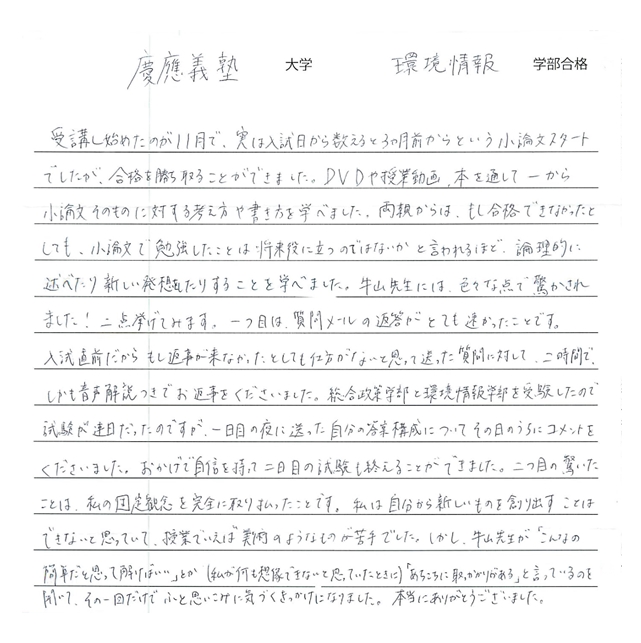 慶應義塾 大学 環境情報 学部合格
受講し始めたのが11月で、実は入試日から数えると3カ月前からという小論文スタート
でしたが、合格を勝ち取ることができました。DVDや授業動画、本を通して一から
小論文そのものに対する考え方や書き方を学べました。両親からは、もし合格できなかったと
しても、小論文で勉強したことは将来役に立つのではないかと言われるほど、論理的に
述べたり新しい発想をしたりすることを学べました。牛山先生には、色々な点で驚かされ
ました!二点挙げてみます。一つ目は、質問メールの返答がとても速かったことです。
入試直前だからもし返事が来なかったとしても仕方がないと思って送った質問に対して、二時間で、
しかも音声解説つきでお返事をくださいました。総合政策学部と環境情報学部を受験したので
試験が連日だったのですが、一日目の夜に送った自分の答案構成についてその日のうちにコメントを
くださいました。おかげで自信を持って二日目の試験も終えることができました。二つ目の驚いた
ことは、私の固定観念を完全に取り払ったことです。私は自分から新しいものを創り出すことは
できないと思っていて、授業でいえば美術のようなものが苦手でした。しかし、牛山先生が「こんなの
簡単だと思って解けばいい」とか(私が何も想像できないと思っていたときに)「あちこちに取っかかりがある」と言っているのを
聞いて、その一回だけでふと思いこみに気づくきっかけになりました。本当にありがとうございました。